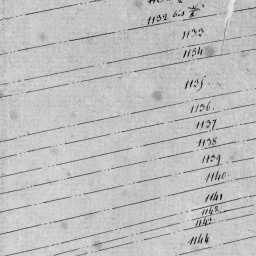 1132 bis
1133
1134
1135
1136.
1137
1138
1139
1140
1141
1142
1143
1144